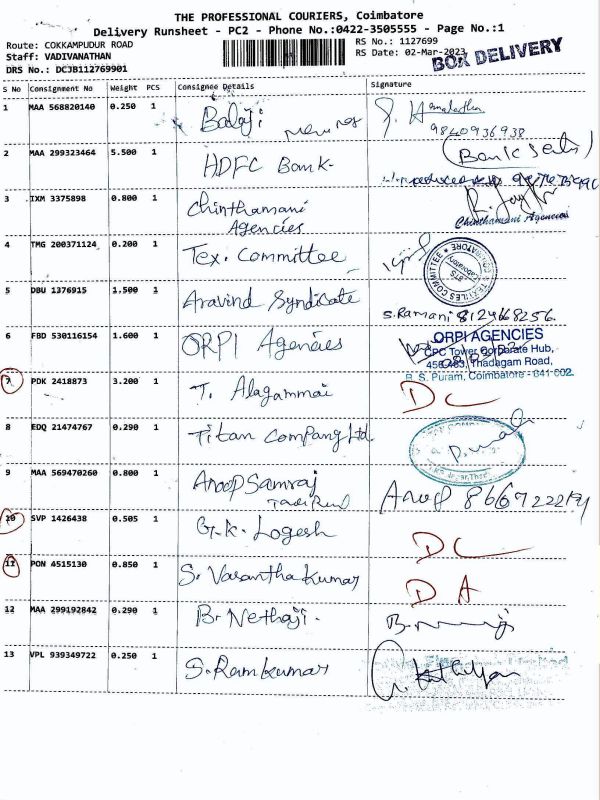 THE PROFESSIONAL COURIERS, Coimbatore
Delivery Runsheet - PC2 - Phone No.:0422-3505555 - Page No.:1
Route: COKKAMPUDUR ROAD
Staff: VADIVANATHAN
DRS No.: DCJB112769901
RS No.: 1127699
RS Date: 02-Mar-2023
BOX DELIVERY
S No Consignment No Weight PCS Consignee Details Signature
1 MAA 568820140 0.250 1 Balaji
9840936938
2 MAA 299323464 5.500 1 HDFC Bank (Bank Seal)
3 IXM 3375898 0.800 1 Chinthamani Agencies
Chinthamani Agencies
4 TMG 200371124 0.200 1 Tex. Committee
TEXTILES COMMITTEE
5 DBU 1376915 1.500 1 Aravind Syndicate S.Ramani 8124668256.
6 FBD 530116154 1.600 1 ORPI Agencies
ORPI AGENCIES
CPC Tower Corporate Hub,
Thadagam Road,
R. S. Puram, Coimbatore - 641 002.
7 PDK 2418873 3.200 1 T. Alagammai DC
8 EDQ 21474767 0.290 1 Titan Company Ltd.
9 MAA 569470260 0.800 1 Anoop Samraj Anup
10 SVP 1426438 0.505 1 G.K. Logesh DC
11 PON 4515130 0.850 1 S. Vasantha Kumar DA
12 MAA 299192842 0.290 1 B. Nethaji.
13 VPL 939349722 0.250 1 S. Ramkumar